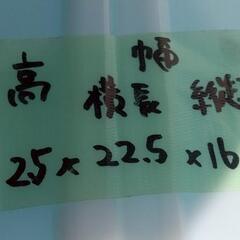 幅
高 横長 縦
25×22.5×16